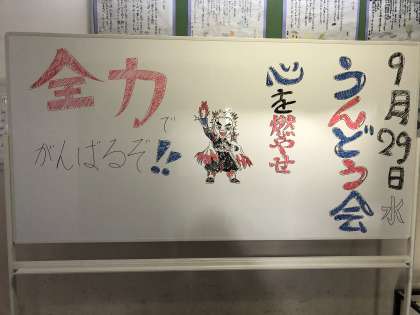 9月29日水
うんどう会
心を燃やせ
全力で
がんばるぞ!!